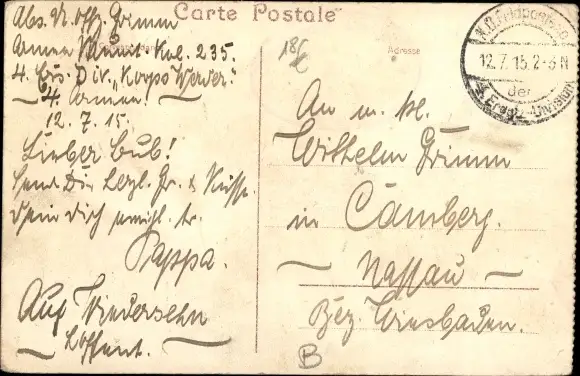 Carte Postale
Abs. U. Offz. Grimm
Armee Kol. 235.
4. Ers. Div. "Korps Werder"
4. Armee.
12.7.15.
Lieber Bub!
send Dir herzl. Gr. & Küsse
Dein Dich
Pappa.
Auf Wiedersehn
186
Adresse
K.D. Feldpostexp.
12.7.15.2-3N
der
4. Ersatz-Division
An m. kl.
Wilhelm Grimm
in Camberg.
Nassau
Bez. Wiesbaden.
B